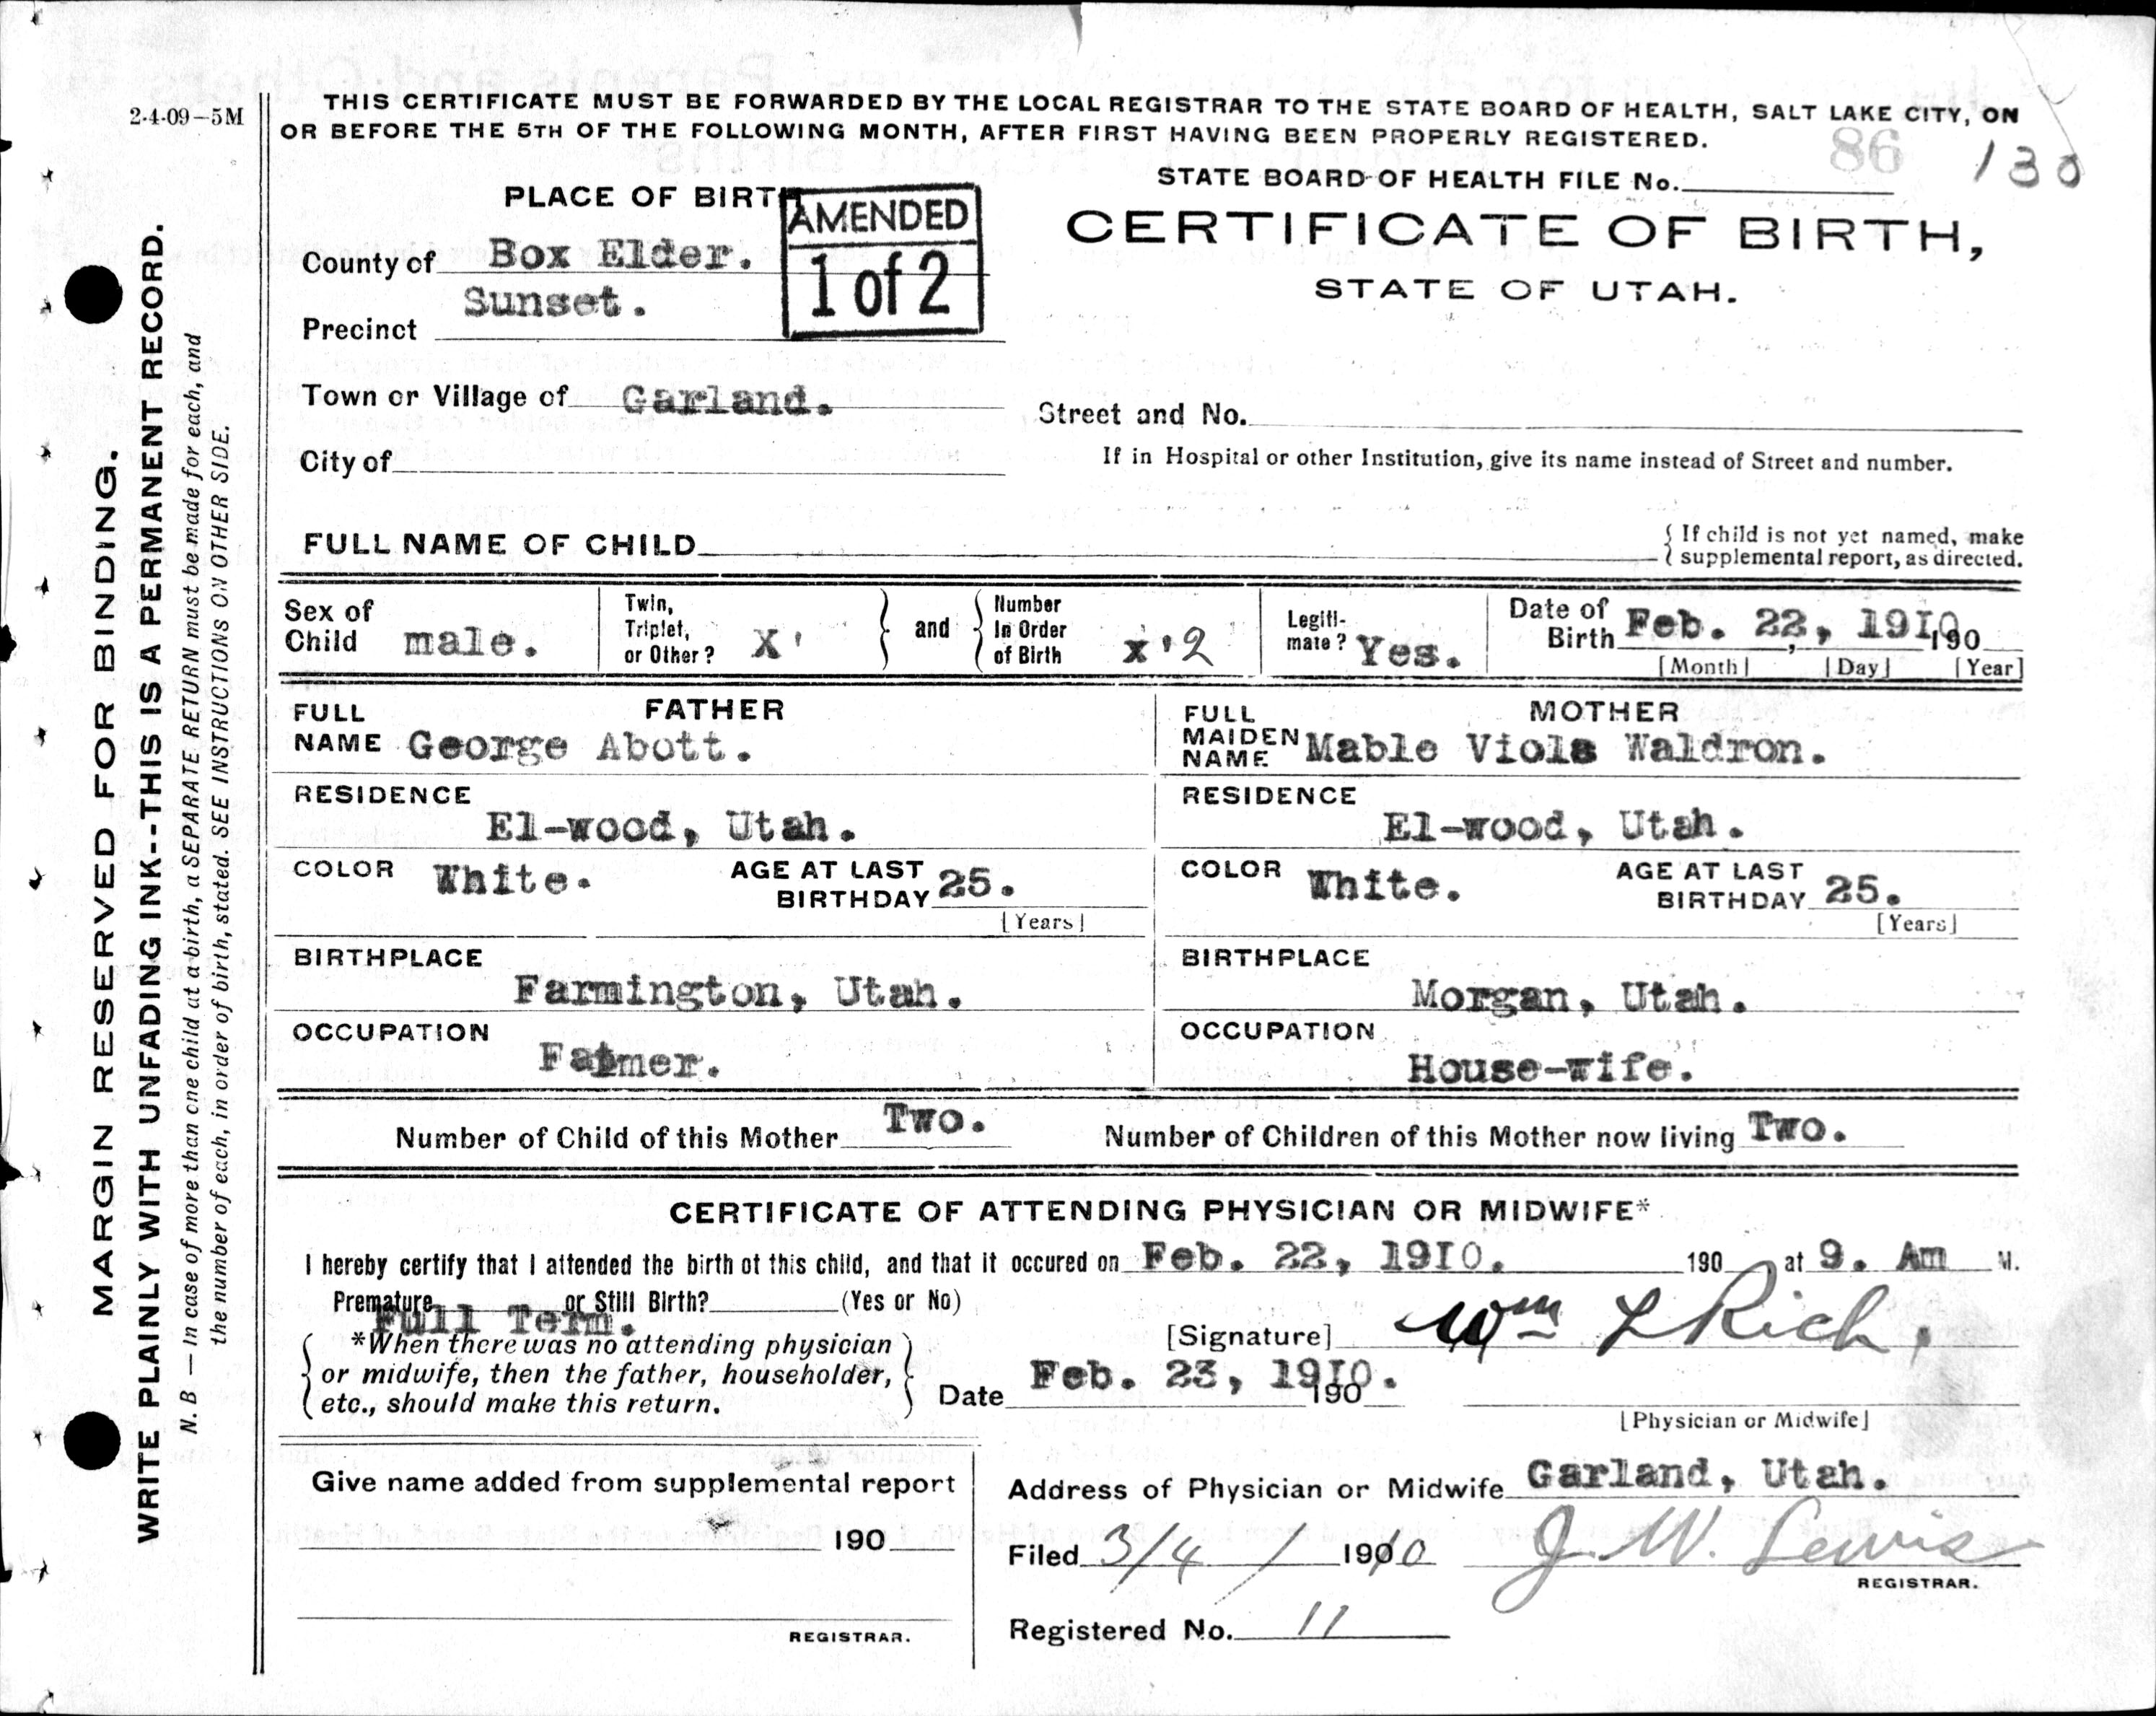 2-4-09-5M
THIS CERTIFICATE MUST BE FORWARDED BY THE LOCAL REGISTRAR TO THE STATE BOARD OF HEALTH, SALT LAKE CITY, ON
OR BEFORE THE 5TH OF THE FOLLOWING MONTH, AFTER FIRST HAVING BEEN PROPERLY REGISTERED.
86 130
STATE BOARD OF HEALTH FILE No.
CERTIFICATE OF BIRTH,
STATE OF UTAH.
PLACE OF BIRTH
AMENDED
1 of 2
County of Box Elder.
Precinct Sunset.
Town or Village of Garland.
Street and No.
City of
If in Hospital or other Institution, give its name instead of Street and number.
FULL NAME OF CHILD
{ If child is not yet named, make
supplemental report, as directed.
Sex of Child male.
Twin, Triplet, or Other? X'
and
Number In Order of Birth x'2
Legiti-mate? Yes.
Date of Birth Feb. 22, 1910 190
[Month] [Day] [Year]
FATHER
FULL NAME George Abott.
RESIDENCE
El-wood, Utah.
COLOR White. AGE AT LAST BIRTHDAY 25.
[Years]
BIRTHPLACE
Farmington, Utah.
OCCUPATION
Farmer.
MOTHER
FULL MAIDEN NAME Mable Viola Waldron.
RESIDENCE
El-wood, Utah.
COLOR White. AGE AT LAST BIRTHDAY 25.
[Years]
BIRTHPLACE
Morgan, Utah.
OCCUPATION
House-wife.
Number of Child of this Mother Two. Number of Children of this Mother now living Two.
CERTIFICATE OF ATTENDING PHYSICIAN OR MIDWIFE*
I hereby certify that I attended the birth of this child, and that it occured on Feb. 22, 1910. 190 at 9. Am M.
Premature or Still Birth? (Yes or No)
Full Term.
*When there was no attending physician
or midwife, then the father, householder,
etc., should make this return.
[Signature] Wm L Rich,
Date Feb. 23, 1910. 190
[Physician or Midwife]
Give name added from supplemental report
190
REGISTRAR.
Address of Physician or Midwife Garland, Utah.
Filed 3/4 / 1910 J. W. Lewis
REGISTRAR.
Registered No. 11
MARGIN RESERVED FOR BINDING.
WRITE PLAINLY WITH UNFADING INK--THIS IS A PERMANENT RECORD.
N. B — In case of more than one child at a birth, a SEPARATE RETURN must be made for each, and
the number of each, in order of birth, stated. SEE INSTRUCTIONS ON OTHER SIDE.